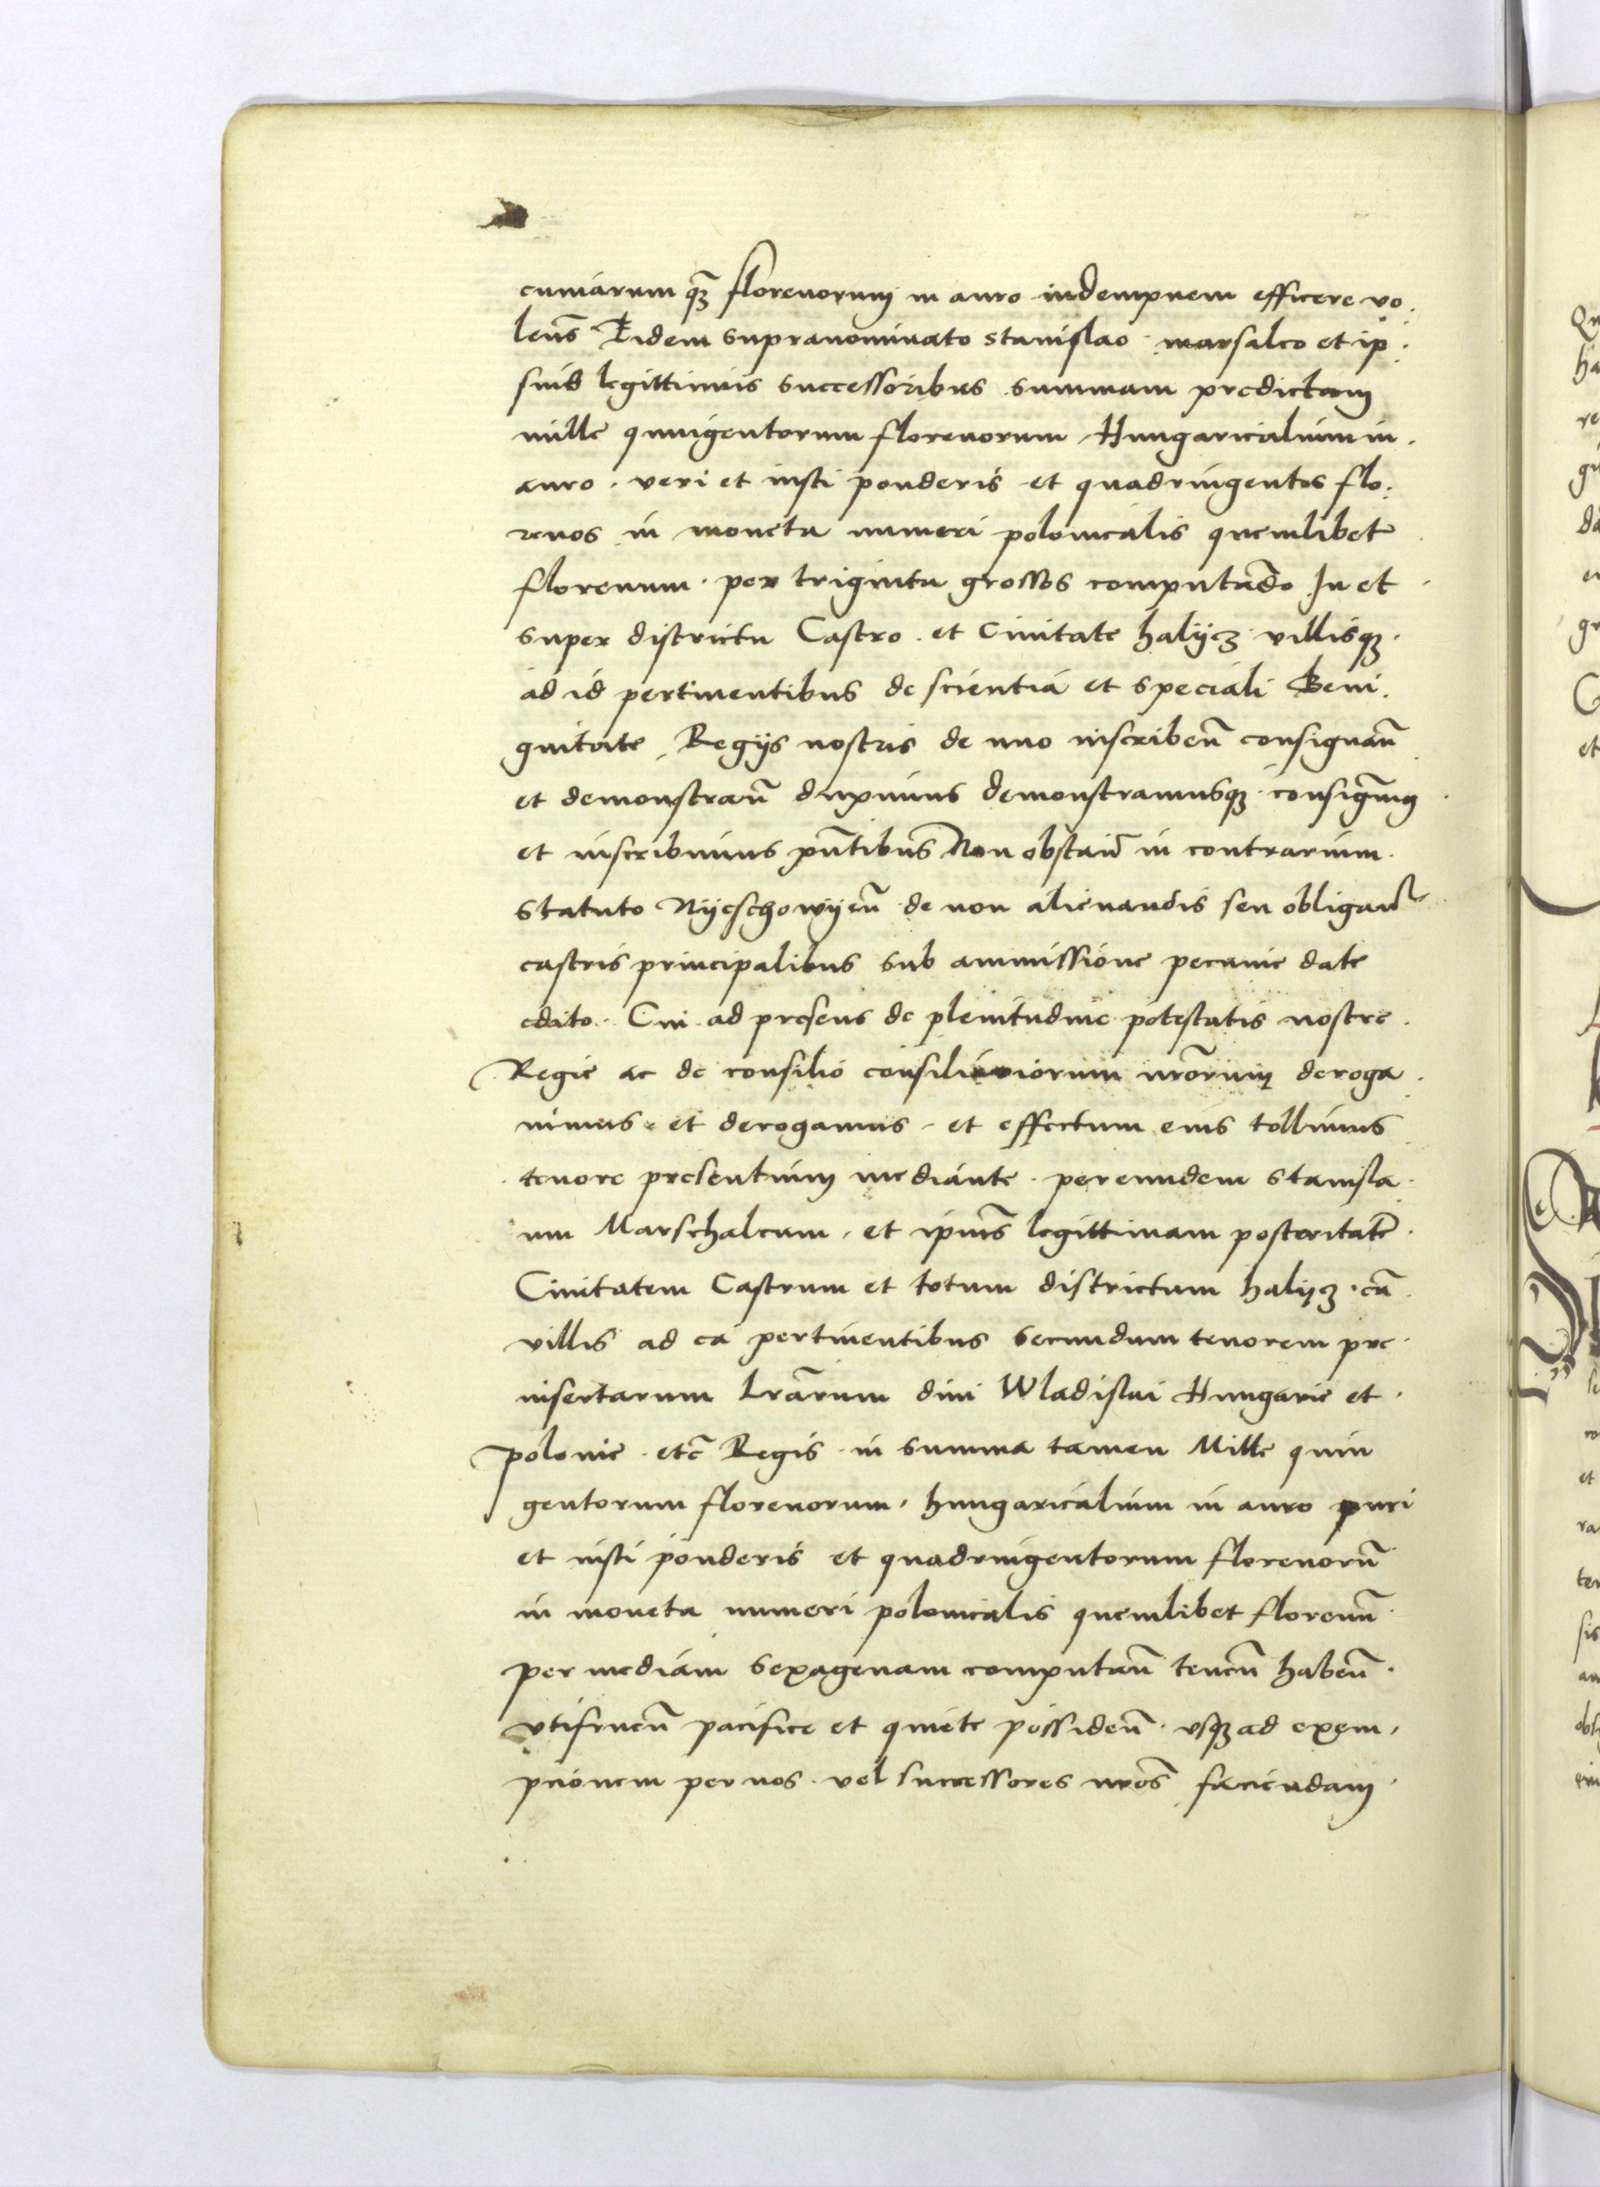 cuniarum qꝫ florenorum in auro indempnem efficere vo
len̄s Eidem supranominato stanislao marsalco et ip
siuS legittimis successoribus summam predictam
mille quingentorum florenorum Hungaricalium in
auro. veri et iusti ponderis et quadringentos flo
renos in moneta numeri polonicalis quemlibet
florenum. per triginta grossos computādo In et
super districtu Castro. et Ciuitate halijcz villisqꝫ
ad id pertinentibus de scientia et speciali Beni
gnitate Regijs nostris de nouo inscriben̄ consignan̄
et demonstran̄ duximus demonstramusqꝫ consignam9
et inscribimus pn̄tibus Non obstan̄ in contrarium
statuto Nyeschowyen̄ de non alienandis seu obligan̄
castris principalibus sub ammissione pecunie date
edito. Cui ad presens de plenitudine potestatis nostre
Regie ac de consilio consiliariorum nr̄orum deroga
uimus et derogamus. et effectum eius tollimus
tenore presentium mediante per eundem Stanisla
um Marschalcum. et ipius̄ legittimam posteritatē
Ciuitatem Castrum et totum districtum halijcz cū
villis ad ea pertinentibus secundum tenorem pre
insertarum lr̄arum diui Wladislai Hungarie et
polonie etc̄ Regis in summa tamen Mille quin
gentorum florenorum. hungaricalium in auro puri
et iusti ponderis et quadringentorum florenorū
in moneta numeri polonicalis quemlibet florenū
per mediam sexagenam computan̄ tenen̄ haben̄
vtifruen̄ pacifice et quiete possiden̄ vsqꝫ ad exem
ptionem per nos vel successores nr̄os faciendam